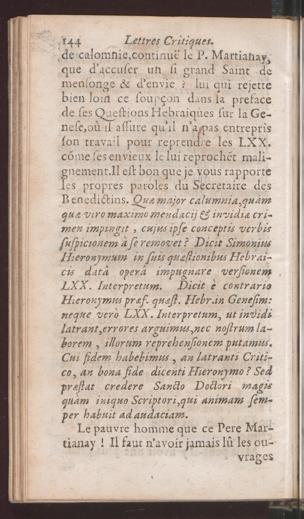 144 Lettres Critiques.
de calomnie, continuë le P. Martianay,
que d'accuser un si grand Saint de
mensonge & d'envie ? lui qui rejette
bien loin ce soupçon dans la preface
de ses Questions Hebraiques sur la Ge-
nese, où il assure qu'il n'a pas entrepris
son travail pour reprendre les LXX.
cõme ses envieux le lui reprochẽt mali-
gnement. Il est bon que je vous rapporte
les propres paroles du Secretaire des
Benedictins. Quæ major calumnia, quàm
quæ viro maximo mendacij & invidiæ cri-
men impingit, cujus ipse conceptis verbis
suspicionem à se removet ? Dicit Simonius
Hieronymum in suis quæstionibus Hebrai-
cis datâ operâ impugnare versionem
LXX. Interpretum. Dicit è contrario
Hieronymus præf. quæst. Hebr. in Genesim:
neque verò LXX. Interpretum, ut invidi
latrant, errores arguimus, nec nostrum la-
borem, illorum reprehensionem putamus.
Cui fidem habebimus, an latranti Criti-
co, an bona fide dicenti Hieronymo ? Sed
præstat credere Sancto Doctori magis
quàm iniquo Scriptori, qui animam sem-
per habuit ad audaciam.
Le pauvre homme que ce Pere Mar-
tianay ! Il faut n'avoir jamais lû les ou-
vrages